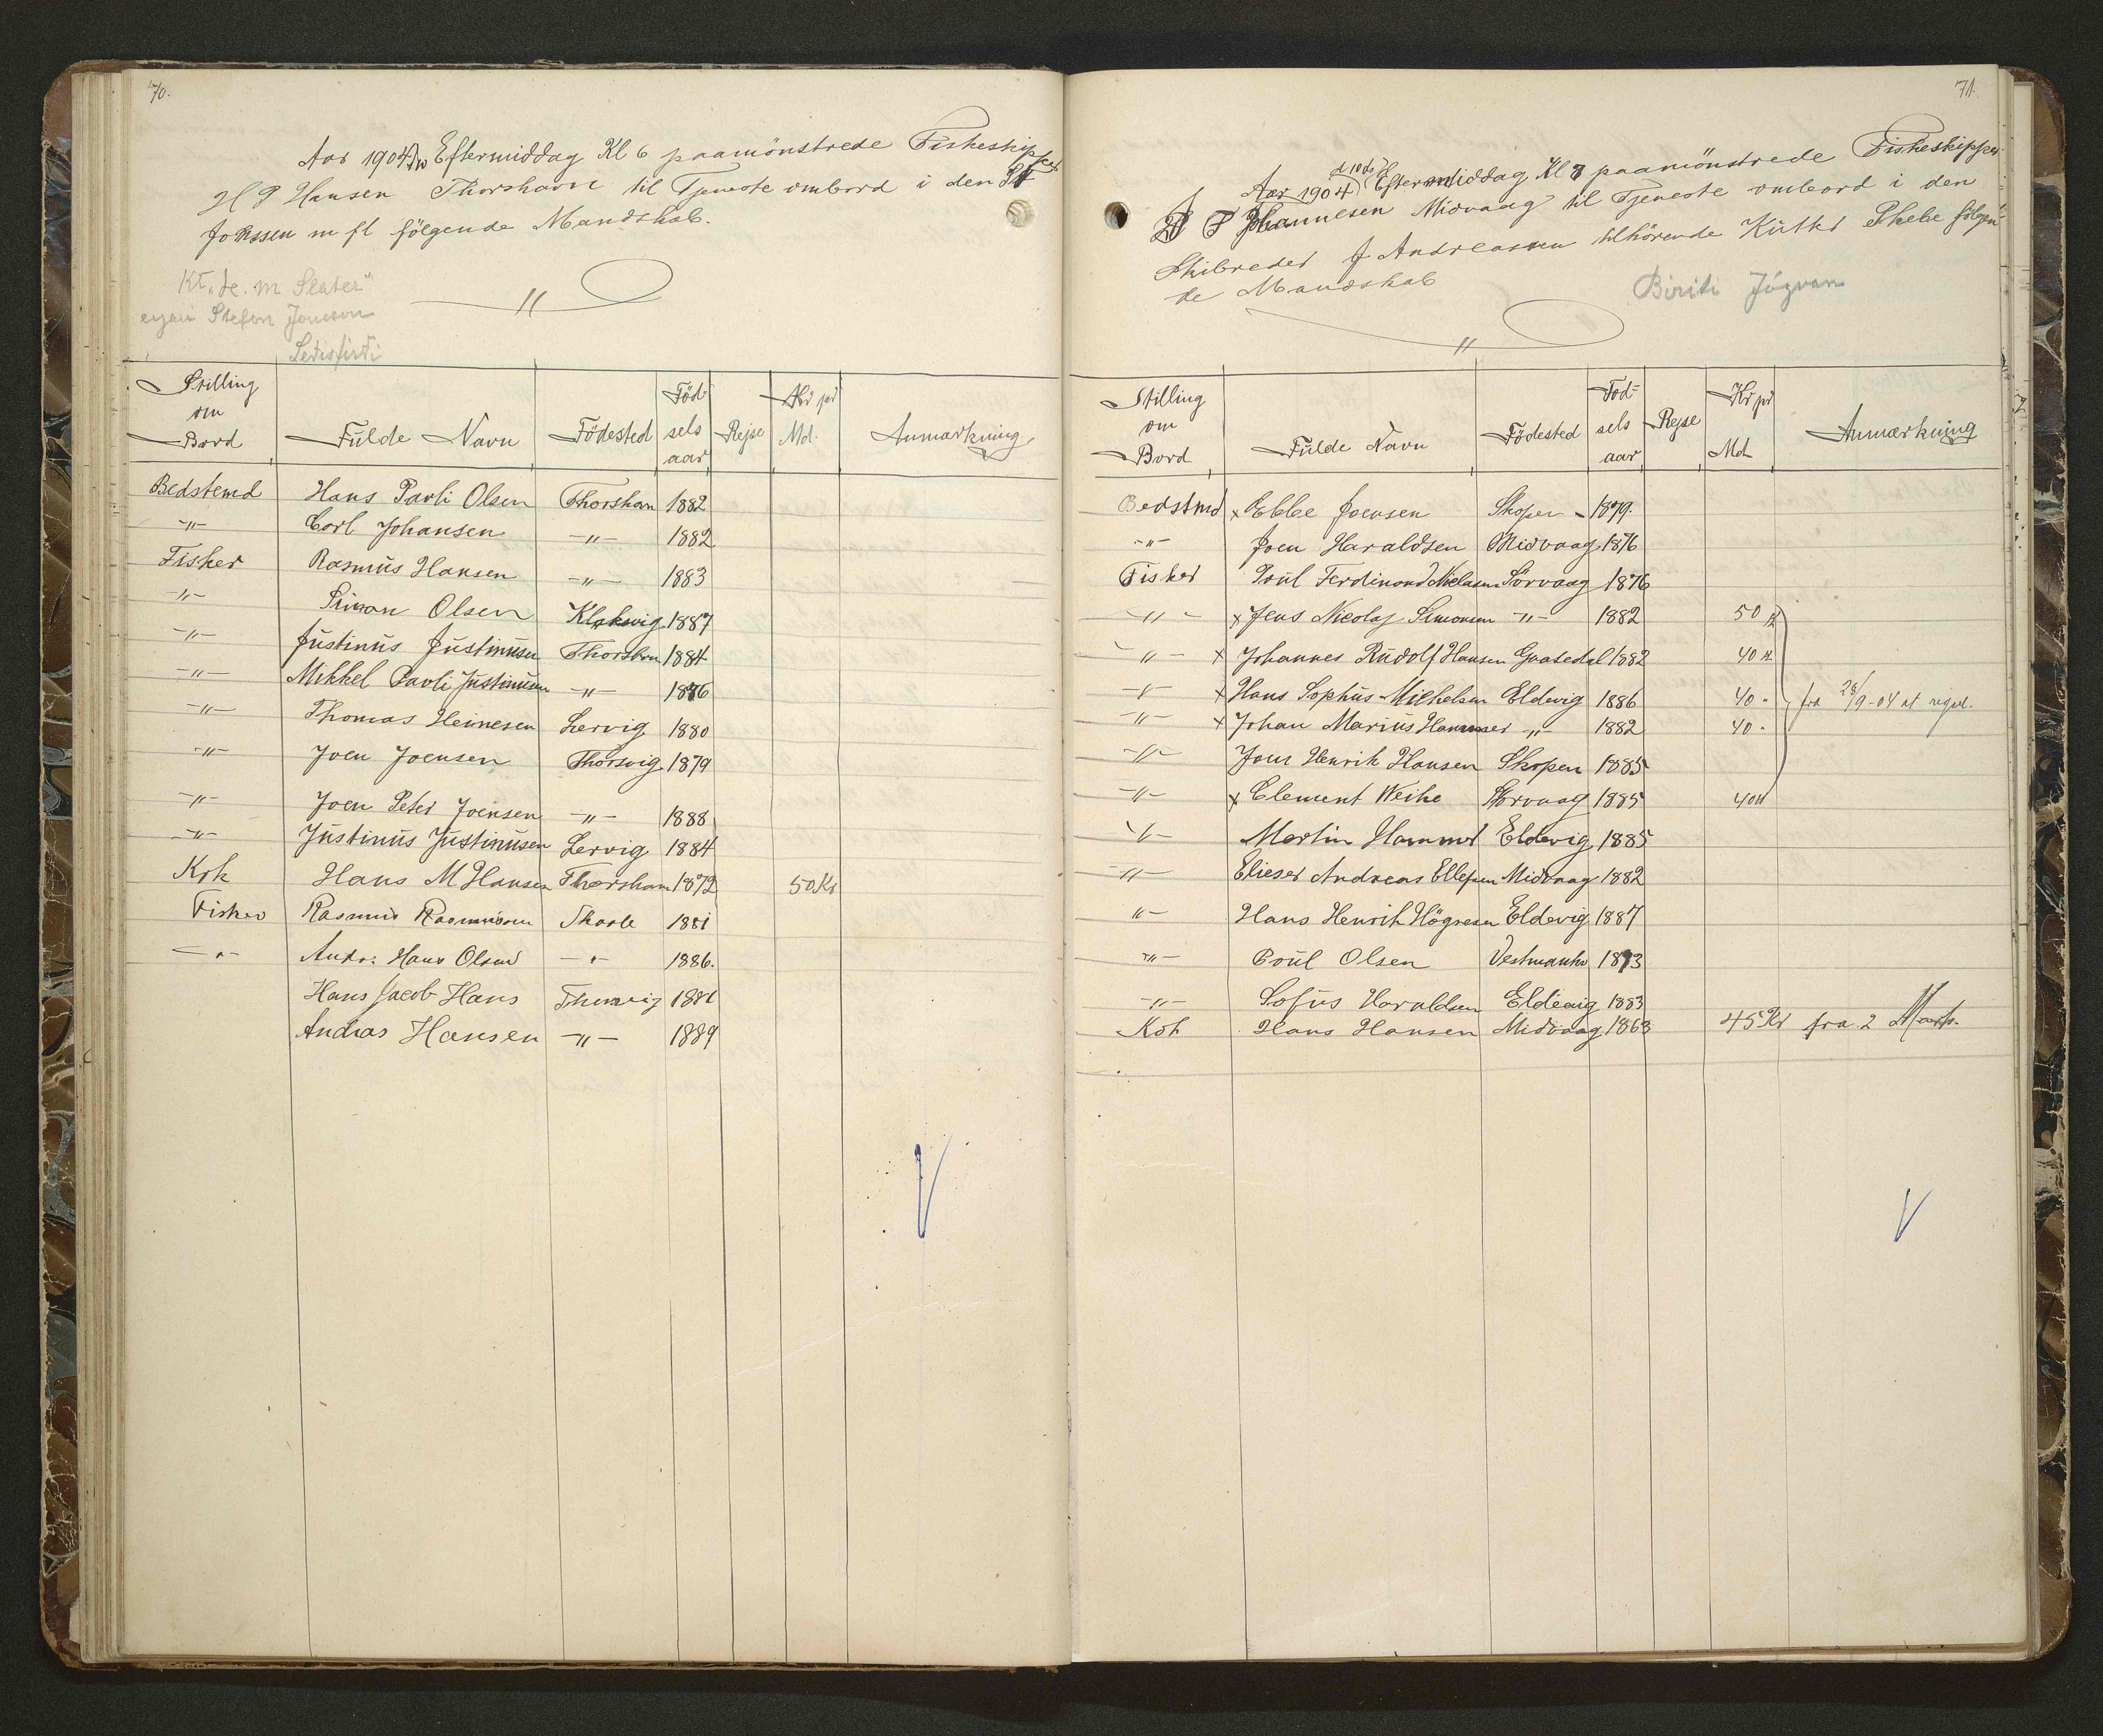 70.
Aar 1904 Eftermiddag Kl 6 paamönstrede Fiskeskipper
H P Hansen Thorshavn til Tjeneste ombord i den St
m fl fölgende Mandskab.
Kt. "
Stefan
Stilling om Bord Fulde Navn Födested Födselsaar Rejse Kr pr Md. Anmærkning
Bedstemd Hans Pavli Olsen Thorshavn 1882
-"- Carl Johansen -"- 1882
Fisker Rasmus Hansen -"- 1883
-"- Simon Olsen Klaksvig 1887
-"- Justinus Justinusen Thorshvn 1884
-"- Mikkel Pavli Justinusen -"- 1876
-"- Thomas Heinesen Lervig 1880
-"- Joen Joensen Thorsvig 1879
-"- Joen Peter Joensen -"- 1888
-"- Justinus Justinusen Lervig 1884
Kok Hans M Hansen Thorshavn 1872 50 Kr
Fisker Rasmus Rasmussen Skaale 1881
-"- Andr: Hans Olsen -"- 1886.
Hans Jacob Hans 1881
Andras Hansen -"- 1889
71.
Aar 1904 Eftermiddag Kl 7 paamönstrede Fiskeskipper
Johannesen Midvaag til Tjeneste ombord i den
Skibreder J Andreasen tilhörende Kutter Phebe fölgen-
de Mandskab
Biriti Jógvan
Stilling om Bord Fulde Navn Födested Födselsaar Rejse Kr pr Md Anmærkning
Bedstmd x Ebbe Joensen Skopen - 1879.
-"- Joen Haraldsen Midvaag 1876
Fisker Poul Ferdinand Nielasen Sörvaag 1876
-"- x Jens Nicolaj Simonsen -"- 1882 50 Kr
-"- x Johannes Rudolf Hansen Gaasedal 1882 40 Kr
-"- x Hans Sophus Michelsen Eldevig 1886 40 " fra 28/9-04 at regul.
-"- x Johan Marius Hammer -"- 1882 40 "
-"- Joen Henrik Hansen Skopen 1885
-"- x Clement Weihe Sörvaag 1885 40 "
-"- Martin Hammer Eldevig 1885
-"- Elieser Andreas Ellefsen Midvaag 1882
-"- Hans Henrik Högnesen Eldevig 1887
-"- Poul Olsen Vestmanhv 1873
-"- Sofus Haraldsen Eldevig 1883
Kok Hans Hansen Midvaag 1863 45 Kr fra 2 Marts.